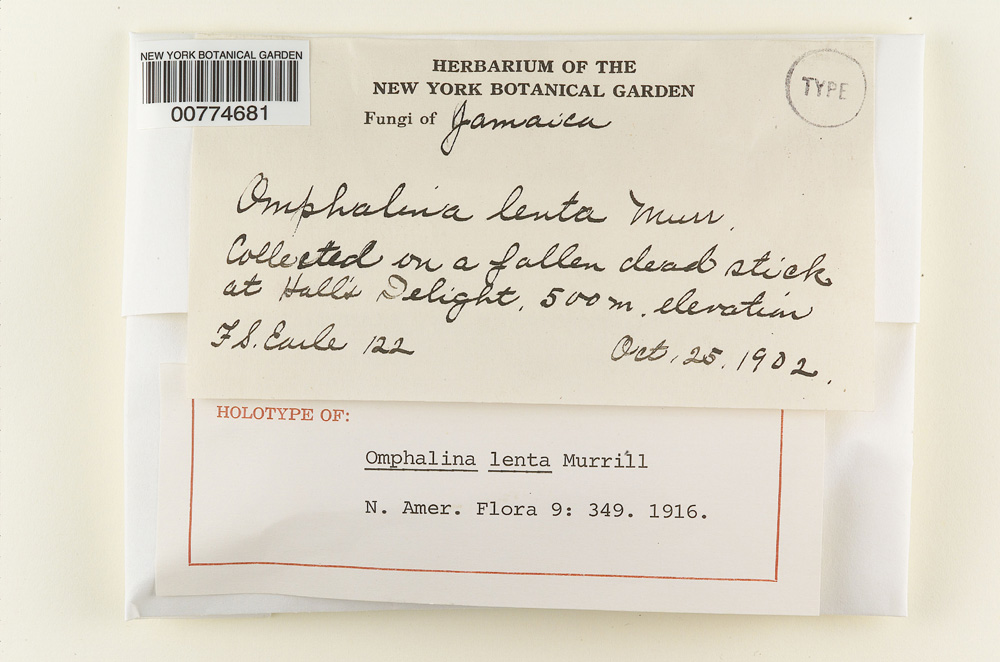 NEW YORK BOTANICAL GARDEN
00774681
HERBARIUM OF THE
NEW YORK BOTANICAL GARDEN
Fungi of Jamaica
TYPE
Omphalina lenta Murr.
Collected on a fallen dead stick
at Hall's Delight, 500 m. elevation
F.S. Earle 122 Oct. 25. 1902.
HOLOTYPE OF:
Omphalina lenta Murrill
N. Amer. Flora 9: 349. 1916.